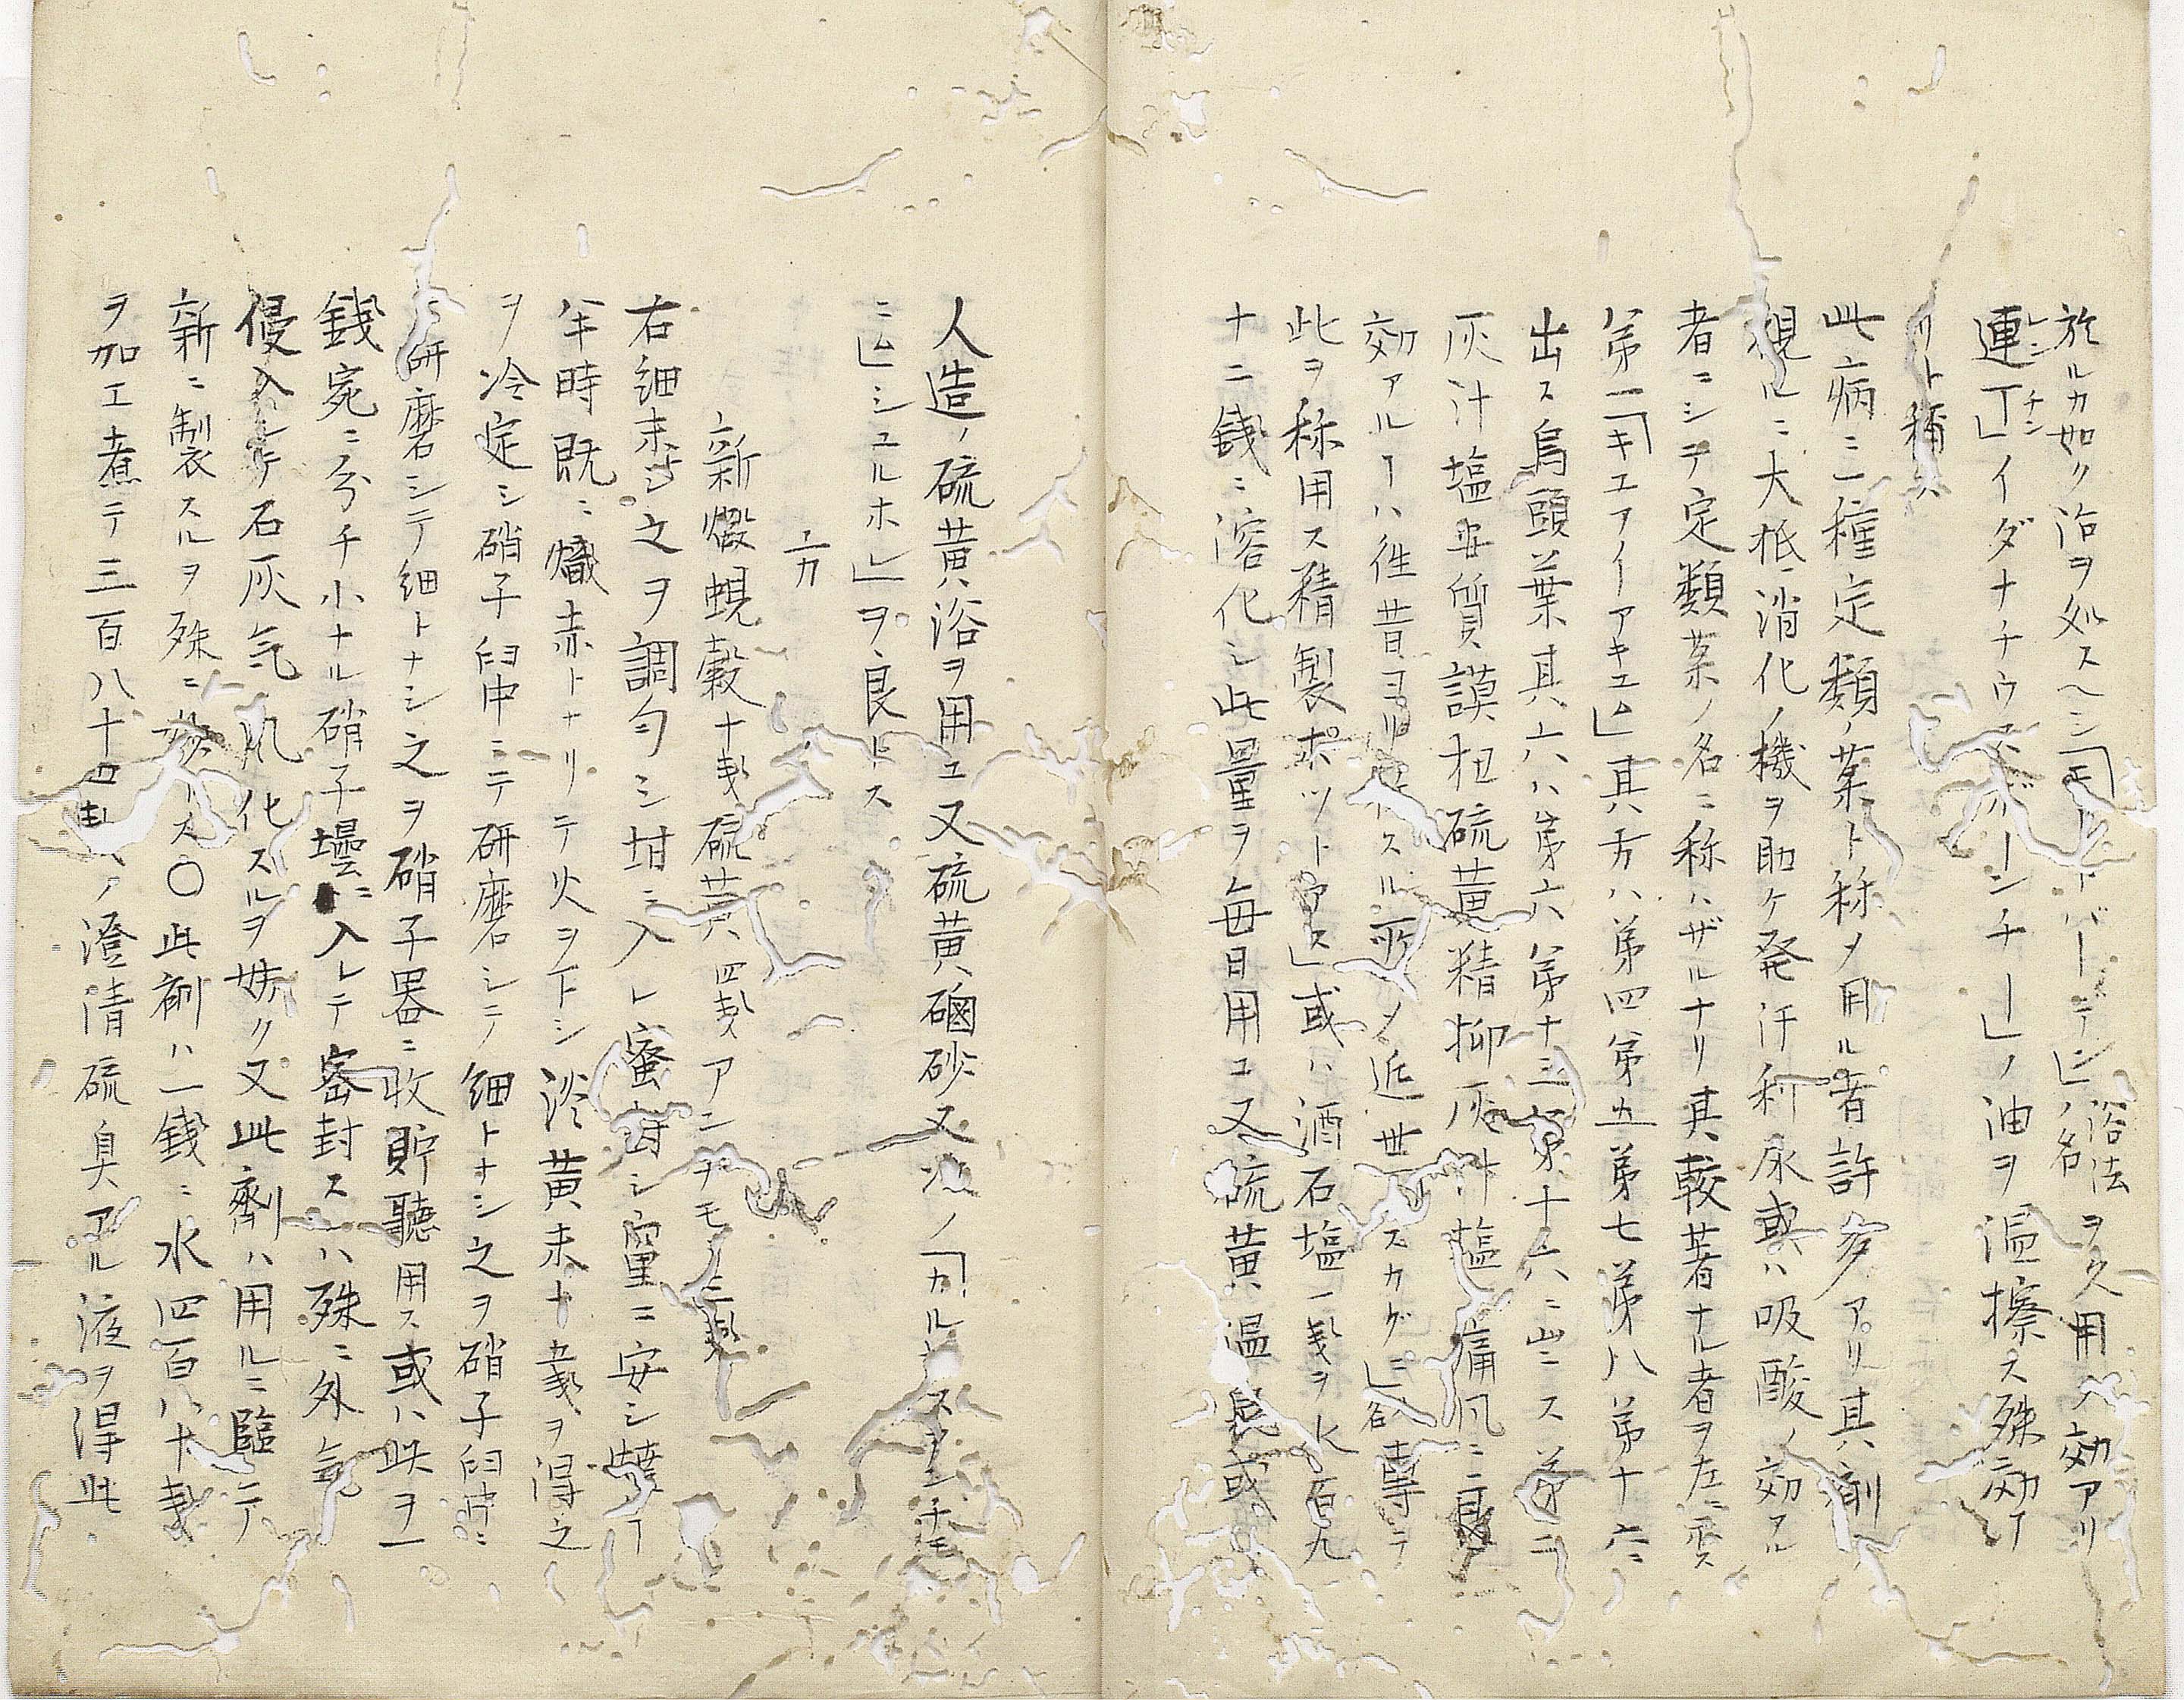 於ルカ如ク治ヲ処スヘシ「モードバーデン」浴法ノ名ヲ久用ス効アリ
連丁」イダナチウスボーンチー」ノ油ヲ温擦ス殊効丁
リト称ス
此病ニ一種定類ノ薬ト称メ用ル者許多アリ其剤
親ルニ大抵消化ノ機ヲ助ケ発汗利尿或ハ吸酸ノ効アル
者ニシテ定類薬ノ名ニ称ハザルナリ其較著ナル者ヲ左ニ云ス
第一「キエアイーアキユム」其方ハ第四第五第七第八第十六ニ
出ス烏頭葉其六ハ第六第十三第十六ニ出ス第二
灰汁塩亜質謨扭硫黄精抑灰汁塩痛風ニ
効アルーハ往昔ヨリスル所ノ近世スカダニ専テ
此ヲ称用ス精製ポットアス」或ハ酒石塩一戔ヲ水百九
十二銭ニ溶化シ此量ヲ毎日用ユ又硫黄温良或
人造ノ硫黄浴ヲ用ユ又硫黄磠砂又次ノ「カルシスアンチモ
ニム」シユルホ」ヲ良トス
方
新煅蜆穀十戔硫黄四戔アンチモ三戔
右細末シ之ヲ調匀シ坩ニ入レ蜜封シ竈ニ安シ焼丁
半時既ニ熾赤トナリテ火ヲ下シ淡黄末十五戔ヲ得之
ヲ冷定シ硝子臼中ニテ研磨シテ細トナシ之ヲ硝子臼中ニ
研磨シテ細トナシ之ヲ硝子器ニ收貯聴用ス或ハ此ヲ一
銭宛ニ分チ小ナル硝子壜ニ入レテ密封ス是ハ殊ニ外気
侵入シテ石灰気風化スルヲ妨ク又此剤ハ用ルニ臨テ
新ニ製スルヲ殊ニ妙トス〇此剤ハ一銭ニ水四百八十戔
ヲ加エ煮テ三百八十四戔ノ澄清硫臭アル液ヲ得此